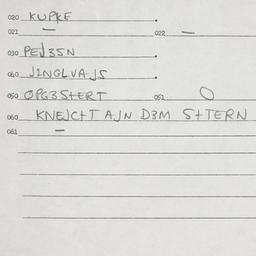 020 KUPKE .
021 — 022 —
030 PEJ35N .
040 JINGLVAJS .
050 OPG3S+ERT 051 O
060 KNEJC+T AJN D3M S+TERN
061 —